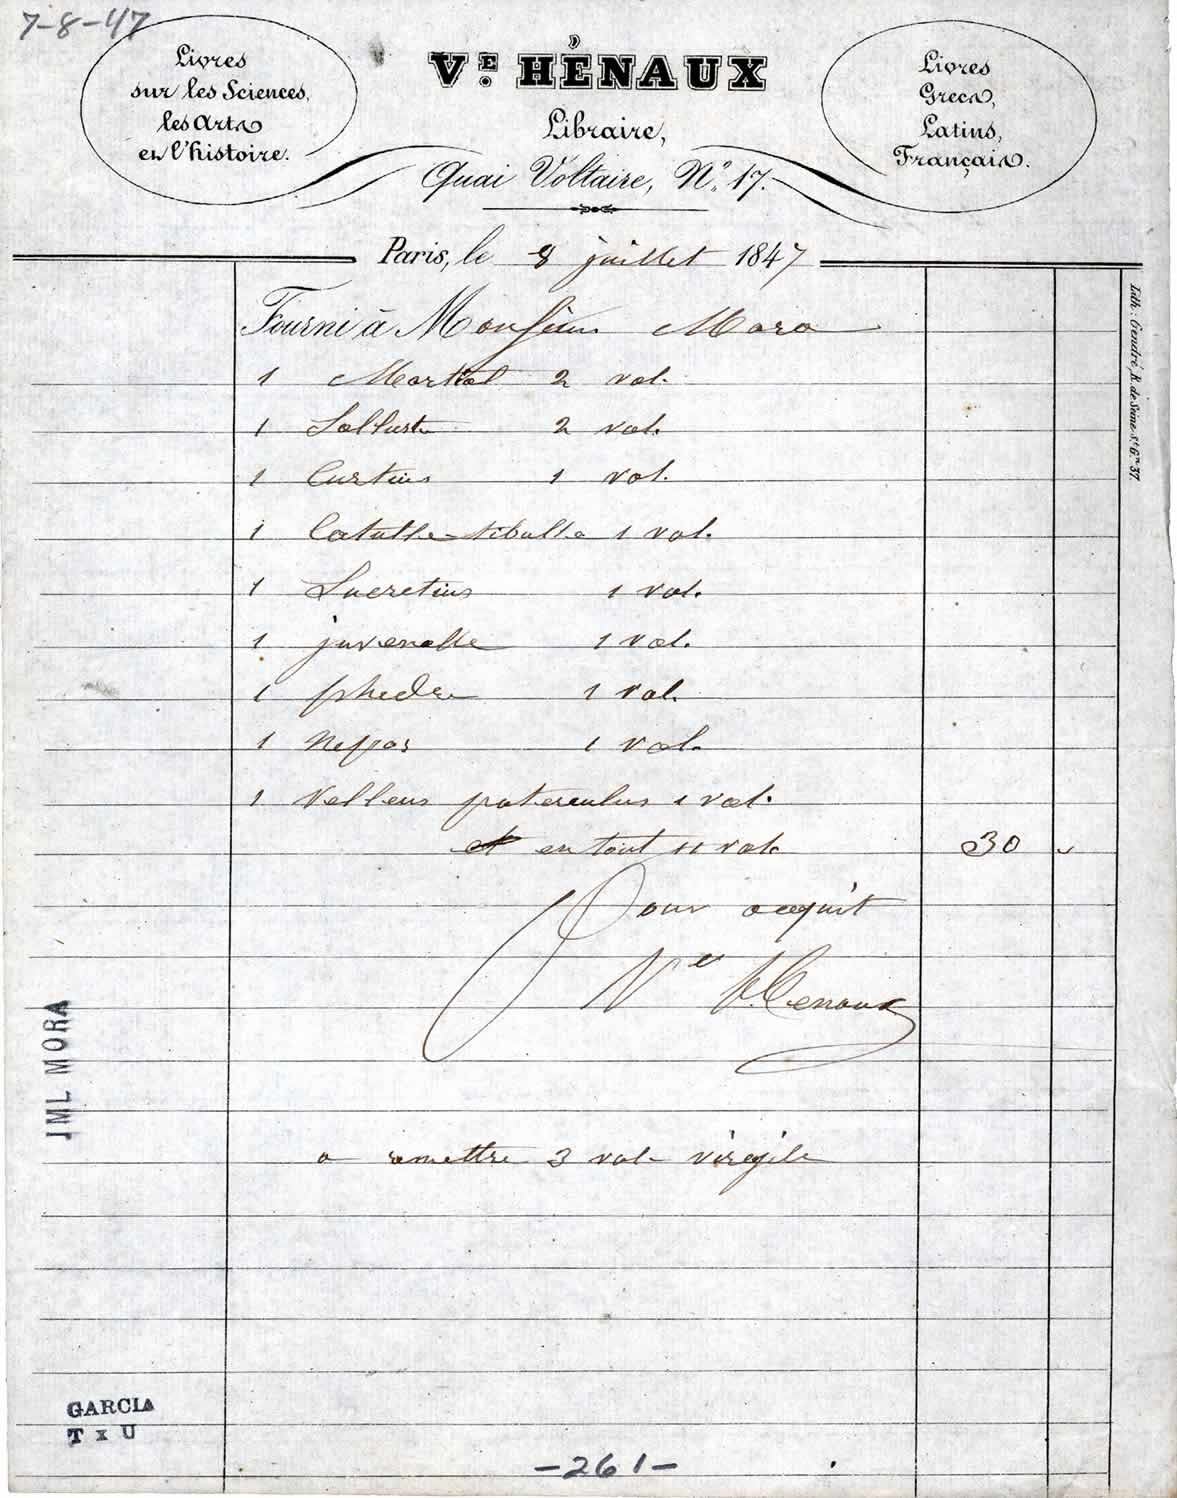 7-8-47
Livres
sur les Sciences,
les Arts
et l'histoire.
VE. HÉNAUX
Libraire,
Quai Voltaire, No. 17.
Livres
Grecs,
Latins,
Français.
Paris, le 8 juillet 1847
Fourni à Monsieur Mora
1 Martial 2 vol.
1 Salluste 2 vol.
1 Curtius 1 vol.
1 Catulle tibulle 1 vol.
1 Lucretius 1 vol.
1 juvenalle 1 vol.
1 phedre 1 vol.
1 Neppos 1 vol.
1 Velleus paterculus 1 vol.
en tout 11 vol. 30
Pour acquit
Ve Henaux
a remettre 3 vol virgile
Lith: Gendré, R. de Seine St. Gn. 37.
JML MORA
GARCIA
T x U
-261-